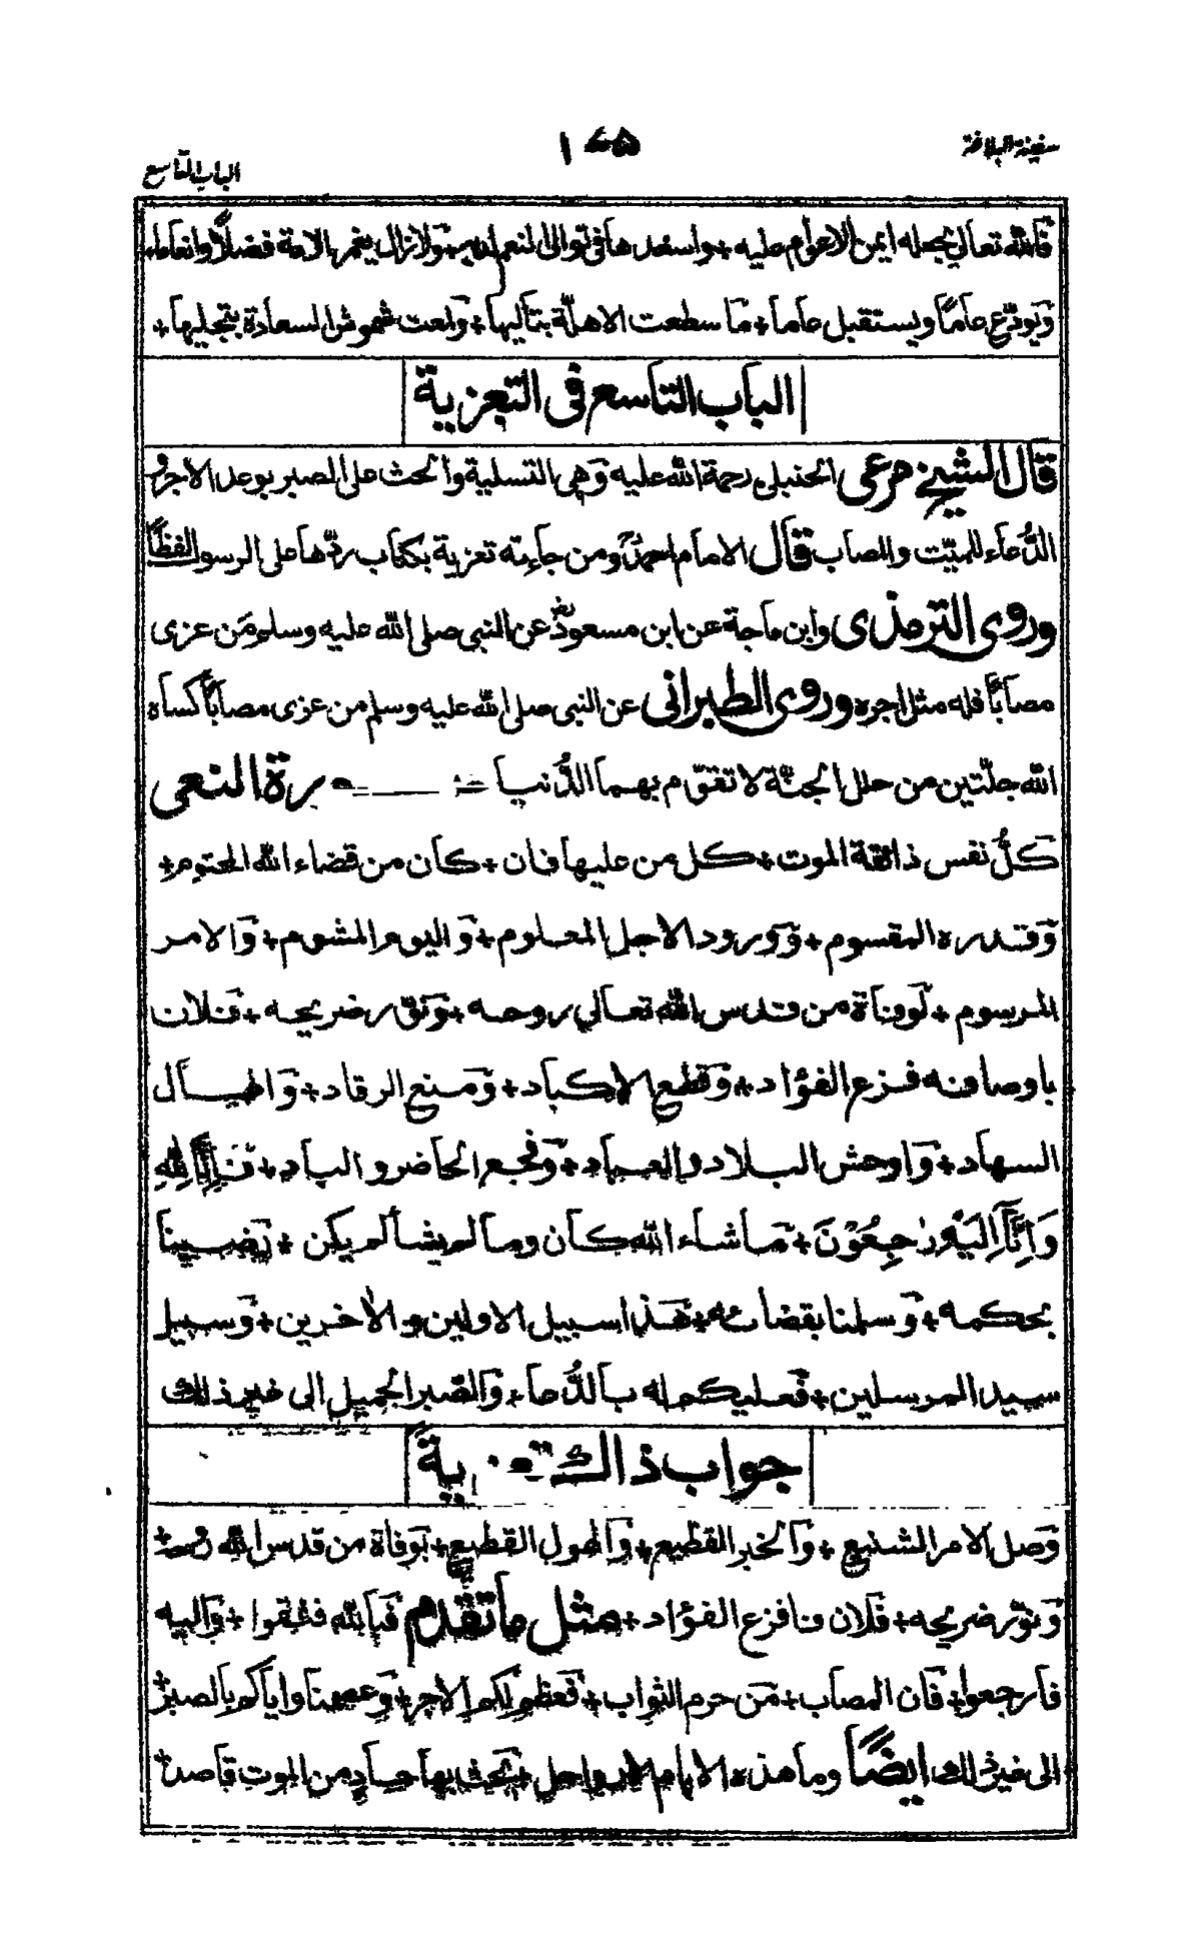 سفينة البلاغة
١٤٥
الباب التاسع
فالله تعالى يجعله ايمن الاعوام عليه + واسعدها في توالى النعم لديه + ولا زال يغمر الامة فضلًا وانعاما +
وَيودّع عامًا ويستقبل عاما + مَا سطعت الاهلّة بتأليها + وَلمعت شموش السعادة بتجليها +
الباب التاسع في التعزية
قال الشيخ مرعى الحنبلي رحمة الله عليه وَهى التسلية والحث على الصبر بوعد الاجر و
الدُّعاء للميّت والمصاب قال الامام احمدؒ ومن جاءته تعزية بكتاب ردّها على الرسول لفظًا
وروى الترمذى وابن ماجة عن ابن مسعودؓ عن النبى صلى الله عليه وسلم مَن عزى
مصابًا فله مثل اجره وروى الطبرانى عن النبى صلى الله عليه وسلم من عزى مصابًا كساه
الله حلّتين من حلل الجنّة لا تقوّم بهما الدُّنيا صورة النعى
كلُّ نفس ذائقة الموت + كل من عليها فان + كان من قضاء الله المحتوم +
وَقدره المقسوم + وَورود الاجل المعلوم + وَاليوم المشوم + وَالامر
المرسوم + لَوفاة من قدس الله تعالى روحه + وَنوّر ضريحه + فلان
باوصافه فزع الفؤاد + وَقطع الاكباد + وَمنع الرقاد + وَاطـال
السهاد + وَاوحش البلاد والعباد + وَفجع الحاضر والباد + فَاِنَّا لِلّٰهِ
وَاِنَّآ اِلَيْهِ رٰجِعُوْنَ + مَا شاء الله كان وما لم يشأ لم يكن + رَضيينا
بحكمه + وَسلمنا بقضائه + هَذا سبيل الاولين والاٰخرين + وَسبيل
سيد المرسلين + فَعليكم له بالدُّعاء وَالصّبر الجميل الى غير ذلك
جواب ذالك التعزيةً
وَصل الامر الشنيع + وَالخبر الفظيع + وَالهول القطيع + بوَفاة من قدس الله روحه +
وَنوّر ضريحه + فلان فافزع الفؤاد + مثل ما تقدم فَبالله فثقوا + وَاليه
فارجعوا + فَان المصاب + مَن حرم الثواب + فَعظم لكم الاجر + وَعصمنا واياكم بالصبر +
الى غير ذلك ايضًا وما هذه الايام الا مراحل + يحث بها حادٍ من الموت قاصد +